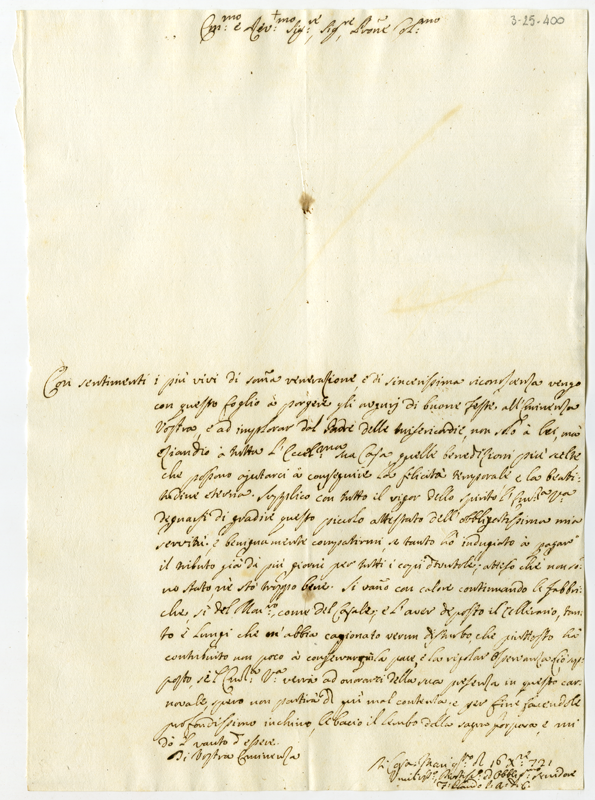 3-25-400
Em:mo e Rev:mo Sig:re, Sig:re Prone Col:mo
Con sentimenti i più vivi di somma venerazione, e di sincerissima riconoscenza vengo
con questo foglio à porgere gli augurij di buone Feste all'Eminenza
Vostra e ad implorar dal Padre delle misericordie, non solo à Lei, mà
eziandio à tutta l'Eccel:ma sua Casa quelle benedizioni più scelte
che possano ajutarci à conseguire la felicità temporale e la beati:
tudine eterna. Supplico con tutto il vigor dello spirito l'Em:za V:a
degnarsi di gradire questo piccolo attestato dell'obbligatissima mia
servitù, e benignamente compatirmi, se tanto hò indugiato à pagar
il tributo già di più giorni per tutti i capi dovutole; atteso che non so:
no stato nè stò troppo bene. Si vanno con calore continuando le fabbri:
che sì del Mon:ro, come del Casale; e l'aver deposto il Cellerario, tan:
to è lungi che m'abbia cagionato verun disturbo, che piuttosto hà
contribuito non poco à conservar la pace, e la regolar osservanza. Ciò sup:
posto, se l'Em:za V:a verrà ad onorarci della sua presenza in questo car:
novale, spero non partirà di quì mal contenta: e per fine facendole
profondissimo inchino, le bacio il lembo della sagra porpora, e mi
dò l'vanto d'essere.
Di Vostra Eminenza
16 Xbre 721
Umiliss:o Obblig:mo Servidore